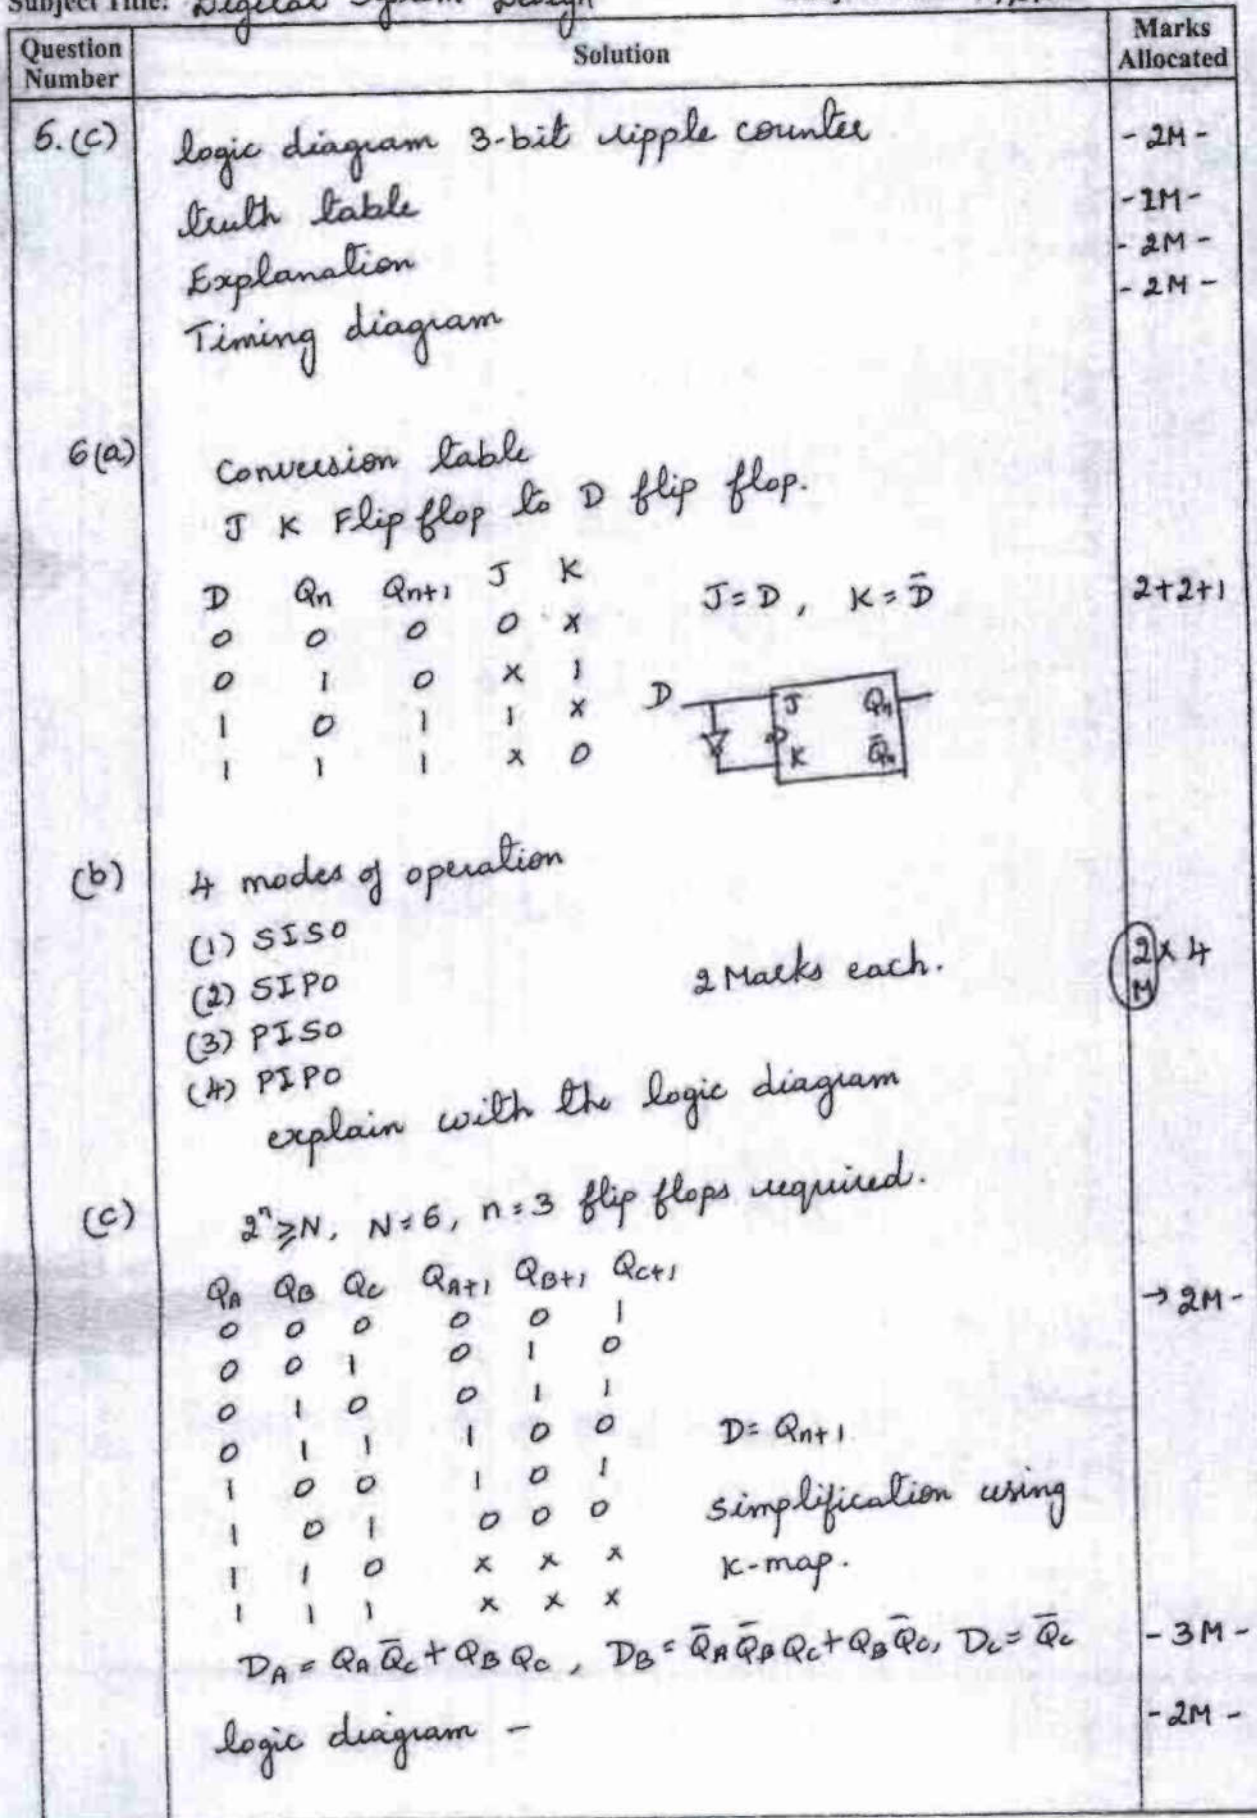 Subject Title: Digital System Design
Question Number Solution Marks Allocated
5.(c) logic diagram 3-bit ripple counter - 2M -
truth table - 1M -
Explanation - 2M -
Timing diagram - 2M -
6(a) Conversion table
J K Flip flop to D flip flop.
D Qn Qn+1 J K J=D, K=D̅ 2+2+1
0 0 0 0 x
0 1 0 x 1
1 0 1 1 x
1 1 1 x 0
D J Qn
K Q̅n
(b) 4 modes of operation
(1) SISO
(2) SIPO 2 Marks each. 2M x 4
(3) PISO
(4) PIPO
explain with the logic diagram
(c) 2ⁿ≥N, N=6, n=3 flip flops required.
QA QB QC QA+1 QB+1 QC+1 → 2M -
0 0 0 0 0 1
0 0 1 0 1 0
0 1 0 0 1 1
0 1 1 1 0 0 D= Qn+1.
1 0 0 1 0 1
1 0 1 0 0 0 simplification using
1 1 0 x x x K-map.
1 1 1 x x x
DA = QA Q̅C + QB QC, DB = Q̅A Q̅B QC + QB Q̅C, DC = Q̅C - 3M -
logic diagram - - 2M -